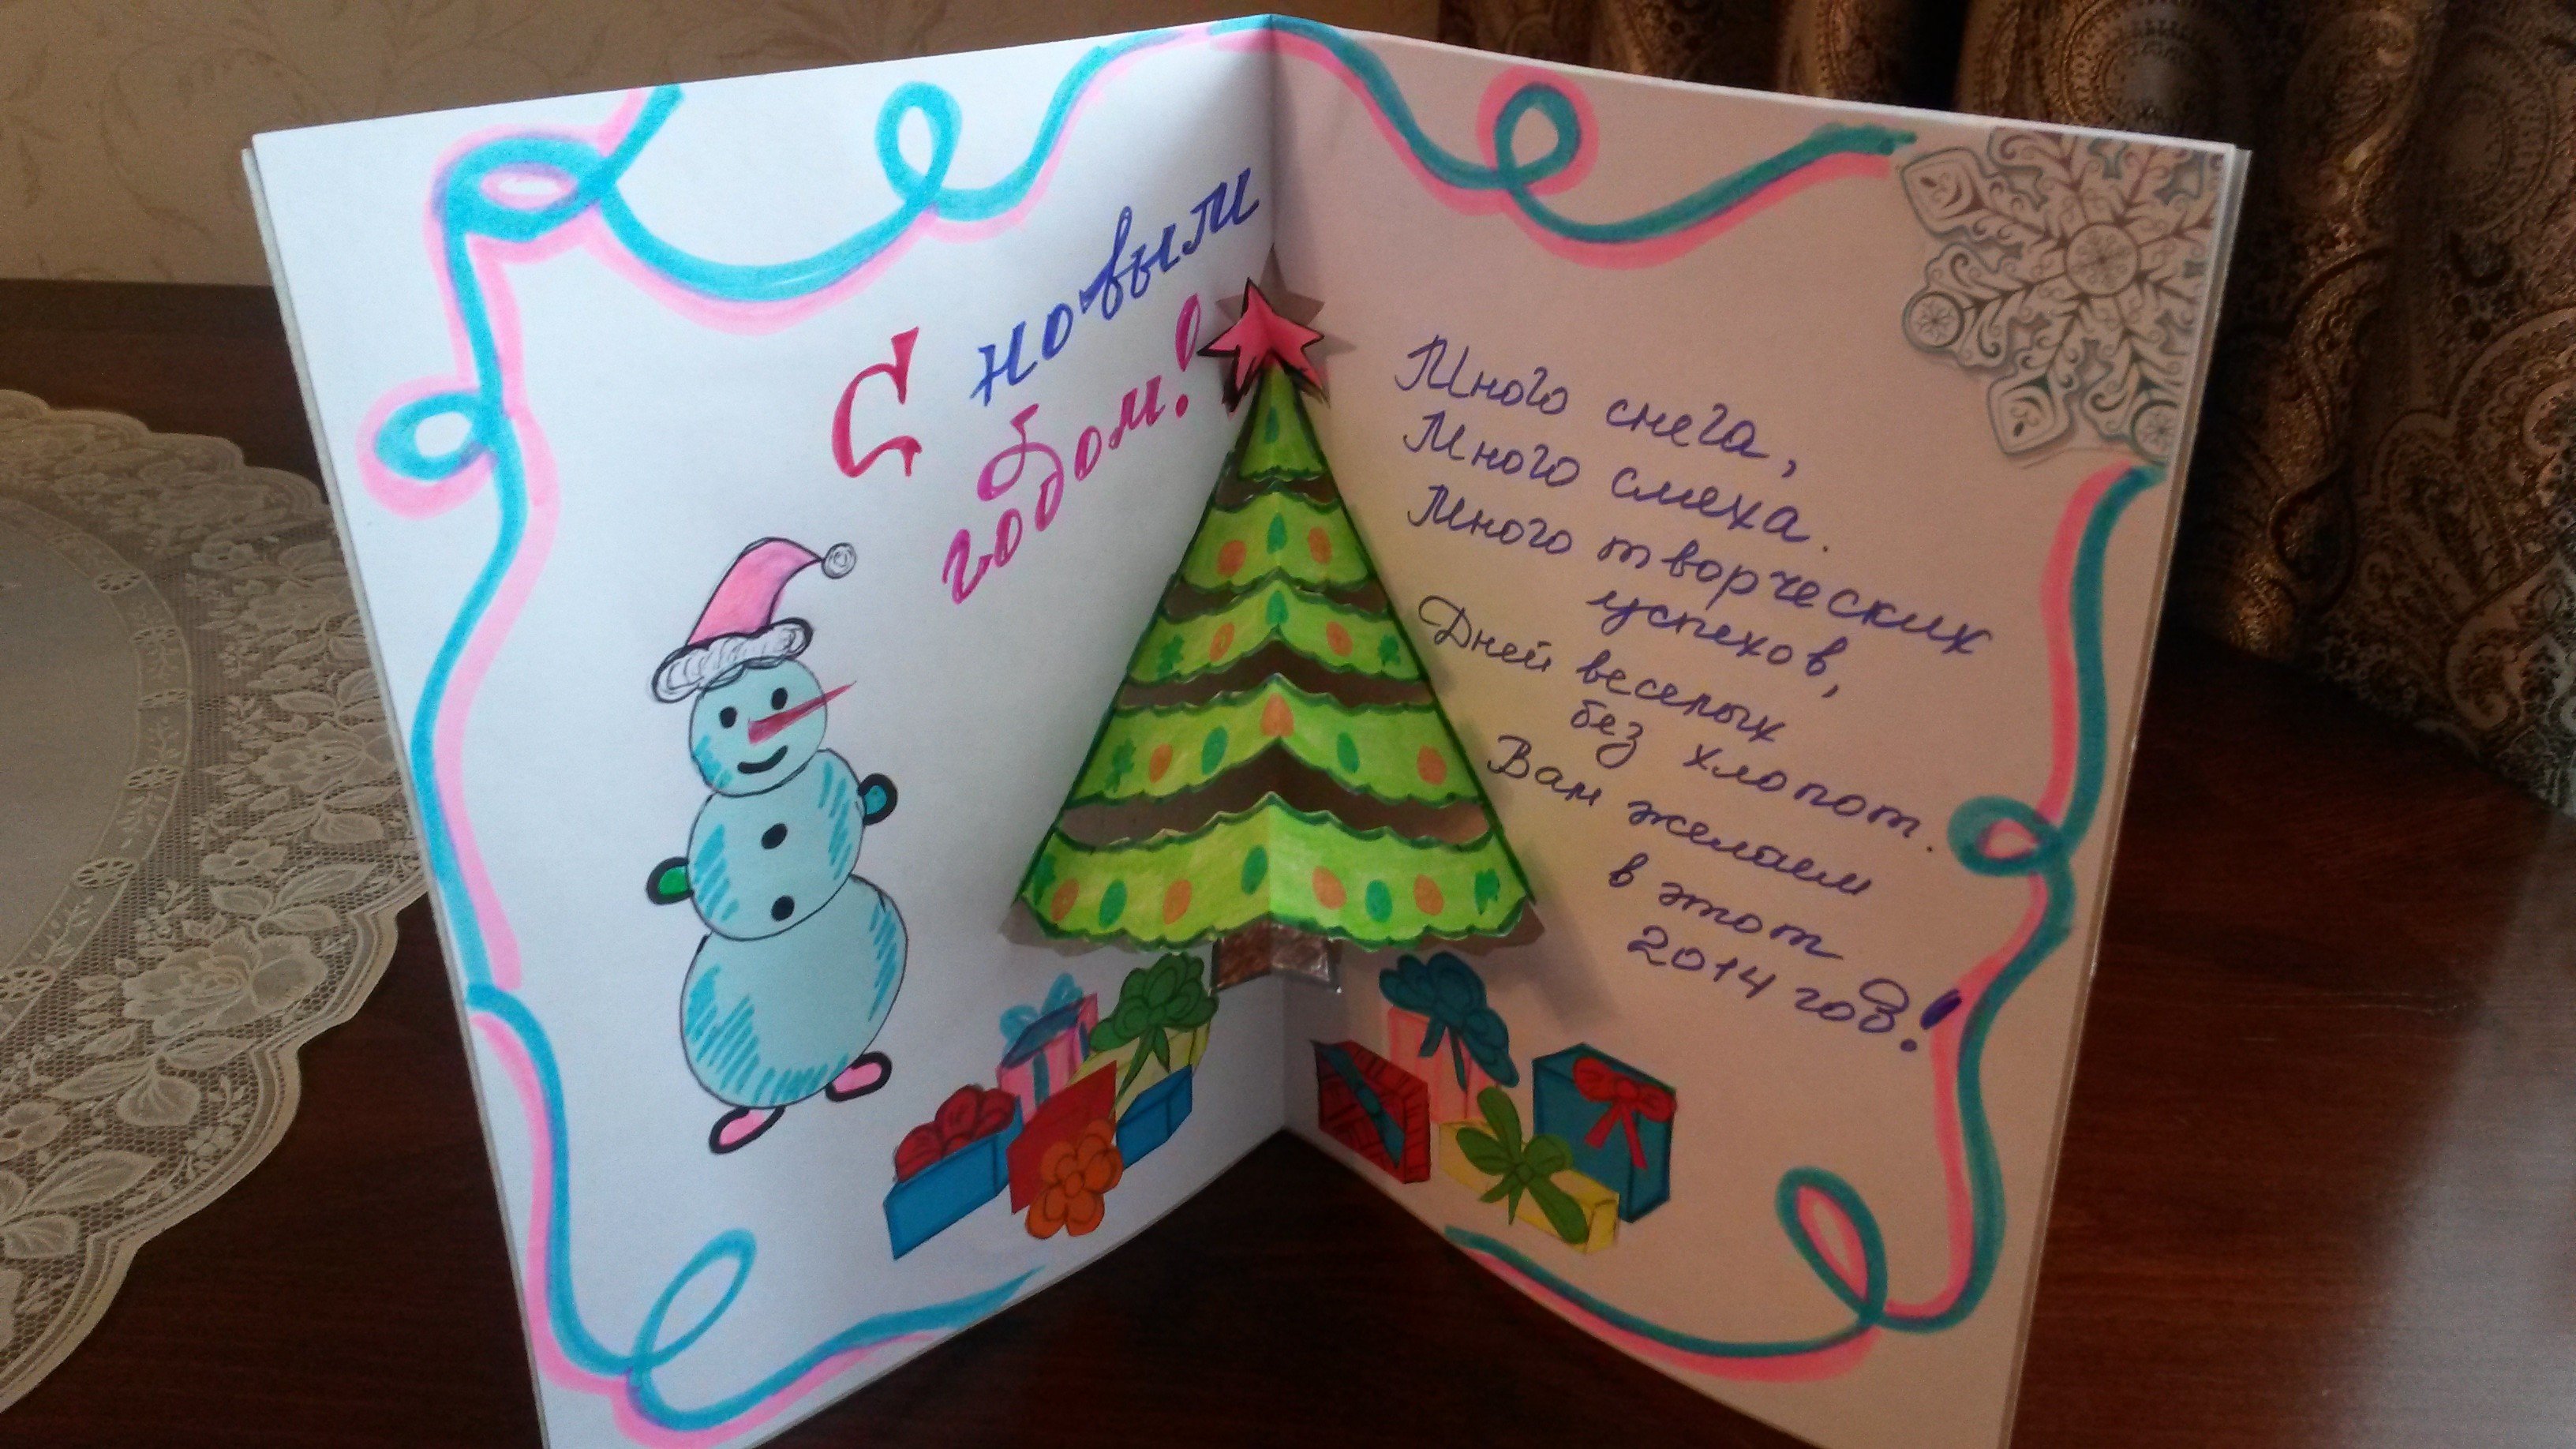 С новым
годом!
Много снега,
Много смеха.
Много творческих
успехов,
Дней веселых
без хлопот.
Вам желаем
в этот
2014 год!